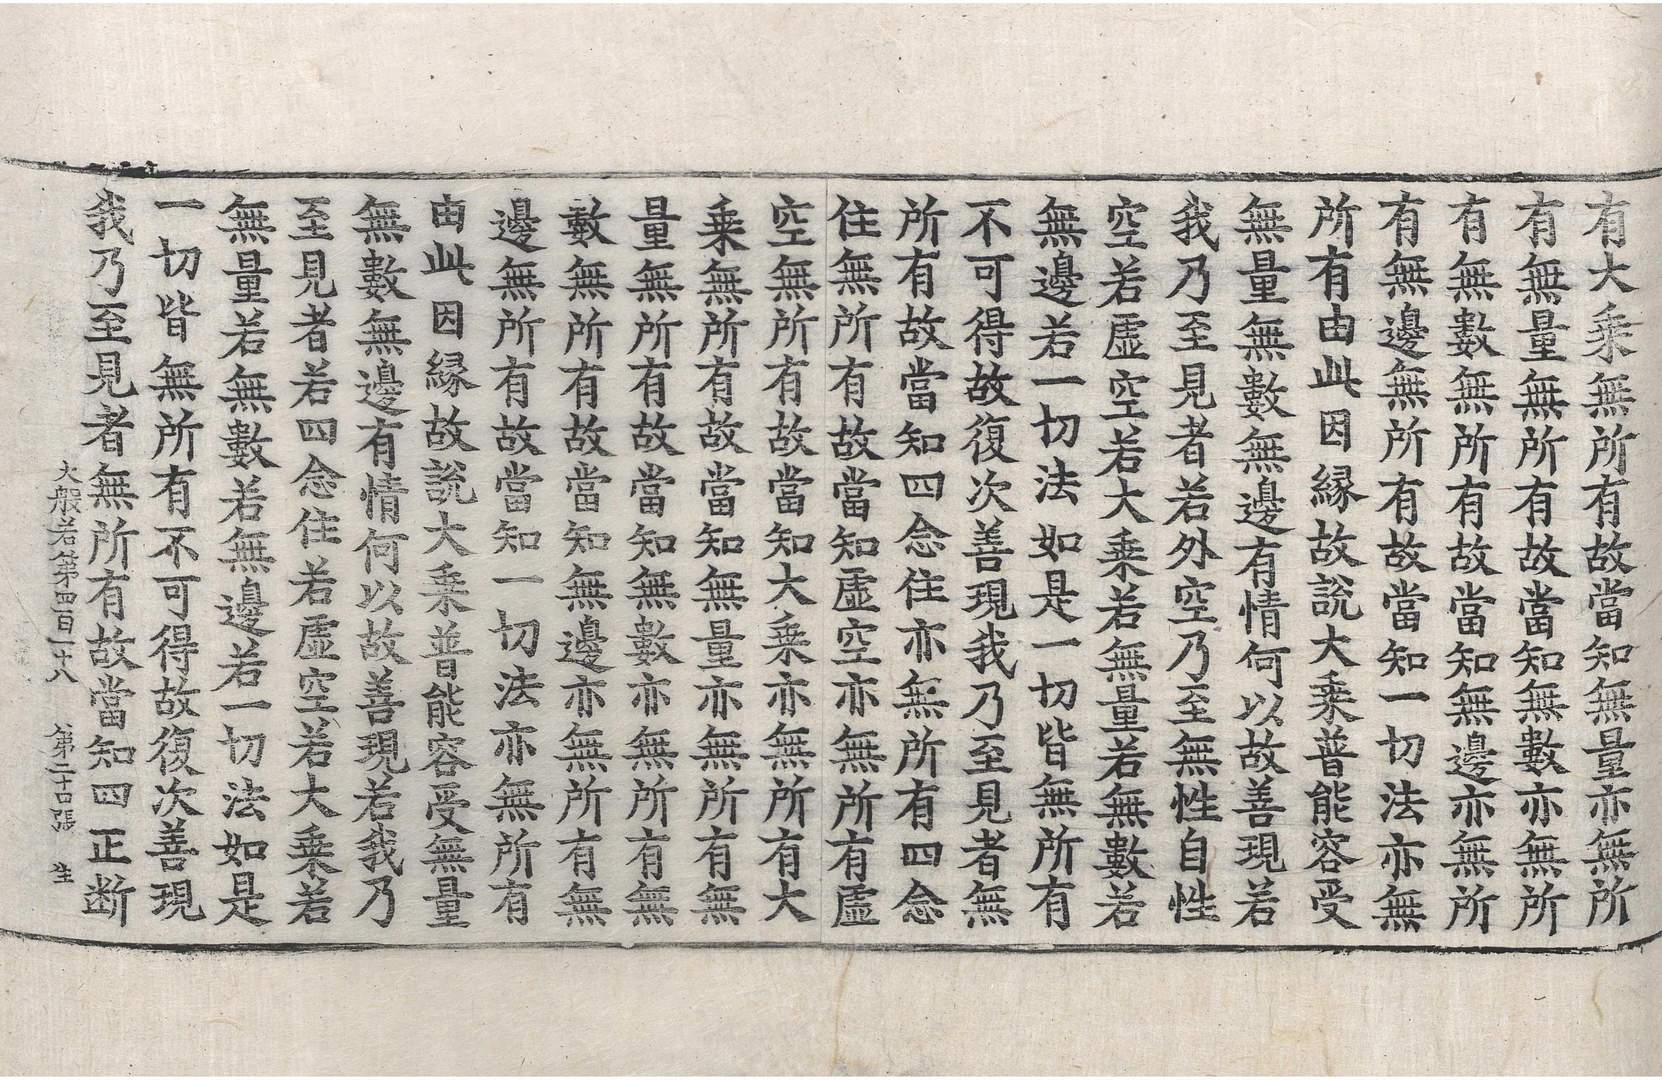 有大乗無所有故當知無量亦無所
有無量無所有故當知無數亦無所
有無數無所有故當知無邊亦無所
有無邊無所有故當知一切法亦無
所有由此因縁故說大乗普能容受
無量無數無邊有情何以故善現若
我乃至見者若外空乃至無性自性
空若虛空若大乗若無量若無數若
無邊若一切法如是一切皆無所有
不可得故復次善現我乃至見者無
所有故當知四念住亦無所有四念
住無所有故當知虛空亦無所有虛
空無所有故當知大乗亦無所有大
乗無所有故當知無量亦無所有無
量無所有故當知無數亦無所有無
數無所有故當知無邊亦無所有無
邊無所有故當知一切法亦無所有
由此因縁故說大乗普能容受無量
無數無邊有情何以故善現若我乃
至見者若四念住若虛空若大乗若
無量若無數若無邊若一切法如是
一切皆無所有不可得故復次善現
我乃至見者無所有故當知四正断
大般若第四百一十八 第二十張